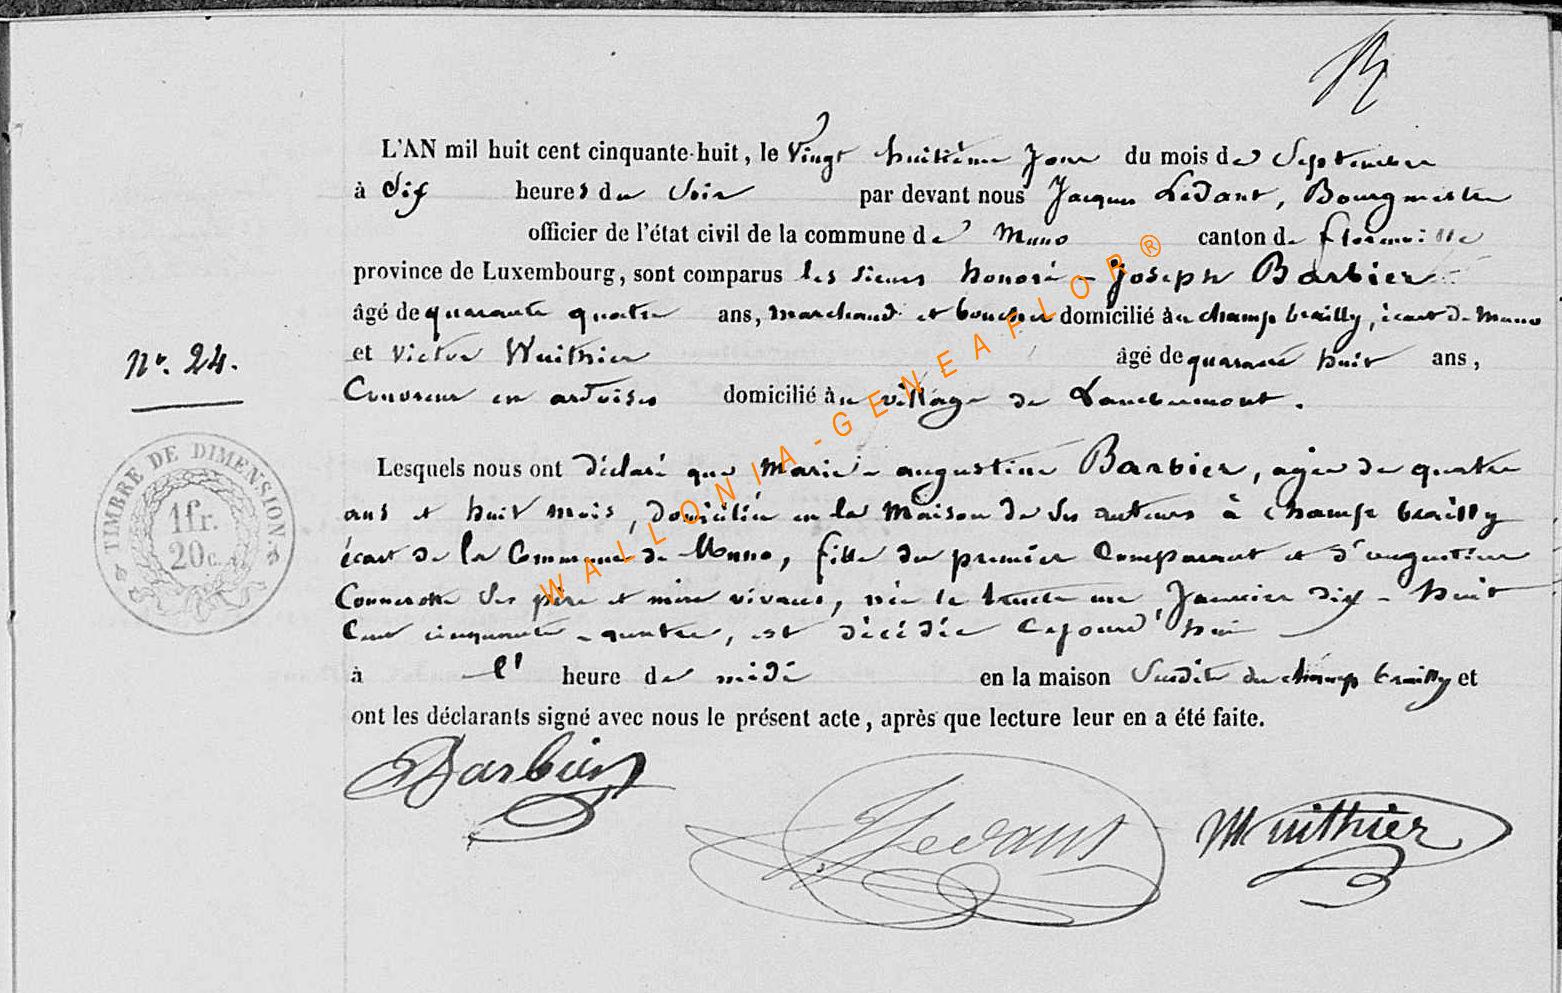 L'AN mil huit cent cinquante-huit, le Vingt huitième jour du mois de Septembre
à Six heures du Soir par devant nous Jacques Ledant, Bourgmestre
officier de l'état civil de la commune de Muno canton de florenville
province de Luxembourg, sont comparus les Sieurs honoré-Joseph Barbier
âgé de quarante quatre ans, marchand et boucher domicilié à champ brailly, écart de Muno
Nr. 24.
et Victor Wuithier âgé de quarante huit ans,
Couvreur en ardoises domicilié à village de Lambermont.
Lesquels nous ont déclaré que Marie augustine Barbier, agée de quatre
ans et huit mois, domiciliée en la Maison de Ses auteurs à champ brailly
écart de la Commune de Muno, fille du premier Comparant et d'augustine
Connerotte Ses père et mère vivans, née le trente un Janvier dix-huit
Cent cinquante-quatre, est décédée Cejourd'hui
à l' heure de midi en la maison Susdite du champ brailly et
ont les déclarants signé avec nous le présent acte, après que lecture leur en a été faite.
Barbier JLedant Wuithier
TIMBRE DE DIMENSION
1 fr.
20 c.
WALLONIA-GENEAFLOR®